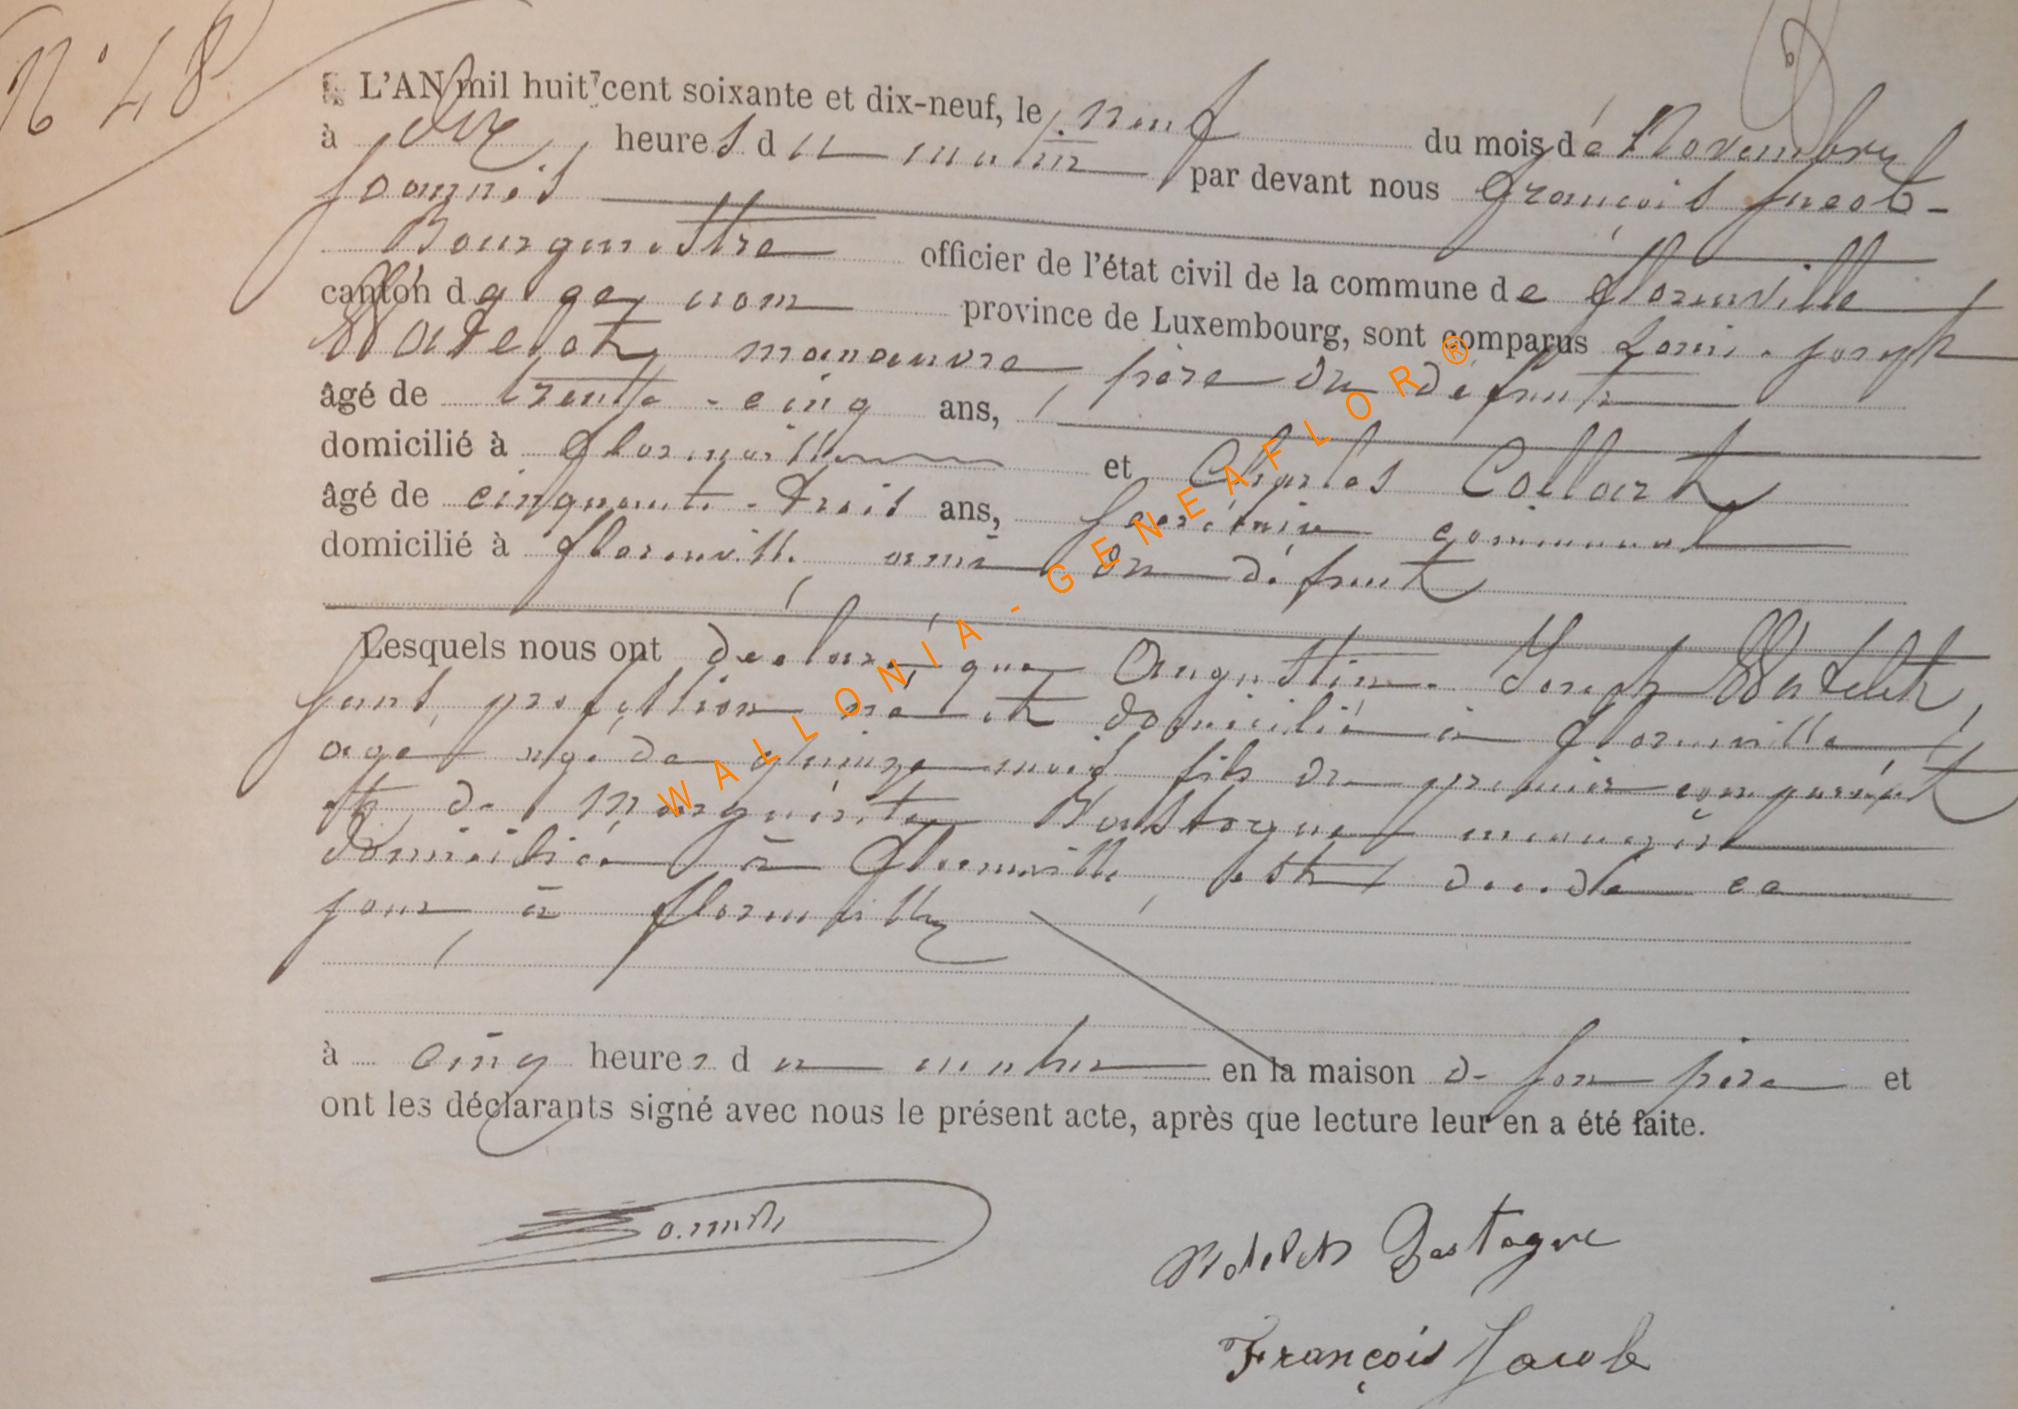 N° 48
L'AN mil huit cent soixante et dix-neuf, le neuf du mois de Novembre
à dix heures du matin par devant nous François Jacob-
Joannès
Bourgmestre officier de l'état civil de la commune de Florenville
canton de ce nom province de Luxembourg, sont comparus Louis-Joseph
Watelet manœuvre, père du défunt
âgé de trente-cinq ans,
domicilié à Florenville et Charles Collart
âgé de cinquante-trois ans, secrétaire communal
domicilié à Florenville, ami du défunt
Lesquels nous ont déclaré que Augustin-Joseph Watelet
sans profession né et domicilié à Florenville,
agé agé de quinze mois fils du premier comparant
et de Marguerite Bastogne ménagère
domiciliée à Florenville, est décédé ce
jour, à Florenville
à cinq heures du matin en la maison de son père et
ont les déclarants signé avec nous le présent acte, après que lecture leur en a été faite.
Watelet Bastogne
François Jacob
WALLONIA - GENEAFLOR ®